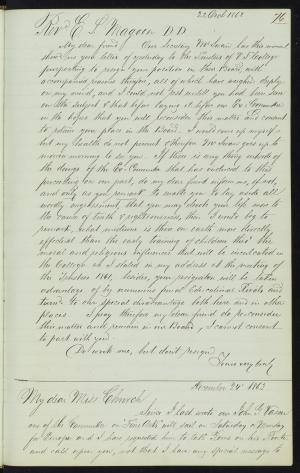 22 Octr 1862
76
Revd E L Magoon D D
My dear friend, Our Secretary Mr Swan has this moment
shown me your letter of yesterday to the Trustees of V. F. College
proposing to resign your position in this Board, with
accompanied reasons therefor, all of which have weighed deeply
on my mind, and I could not rest until you had been seen
on the subject & that before laying it before our Ex: Committee
in the hopes that you will reconsider this matter and consent
to retain your place in the Board. I would come up myself
but my health do not permit & therefore Mr Swan goes up to
morrow morning to see you. If there is any thing outside of
the doings of the Ex: Committee that has induced to this
proceeding on your part, do my dear friend inform me, if not,
and only as you remark to wish to lay aside all
worldly engrossment, that you may devote your life more to
the cause of truth & righteousness, then I would beg to
remark, what medium is there on earth more thereby
effectual than the early training of children thro' the
moral and religious influences that will be inculcated in
the College as I stated in my address at the meeting of
the Trustees 1861, besides, your resignation will be taken
advantage of by numerous final Educational Rivals and
turned to our special disadvantage both here and in other
places. I pray therefore my dear friend do reconsider
this matter and remain in our Board, I cannot consent
to part with you.
Do write me, but don't resign
Yours very truly
December 24th 1862
My dear Miss Church
Since I last wrote our John G. Nason
one of the Committee on Fine Arts will sail on Saturday or Monday
for Europe and I have requested him to take Rome on his route
and call upon you, not that I have any special message to